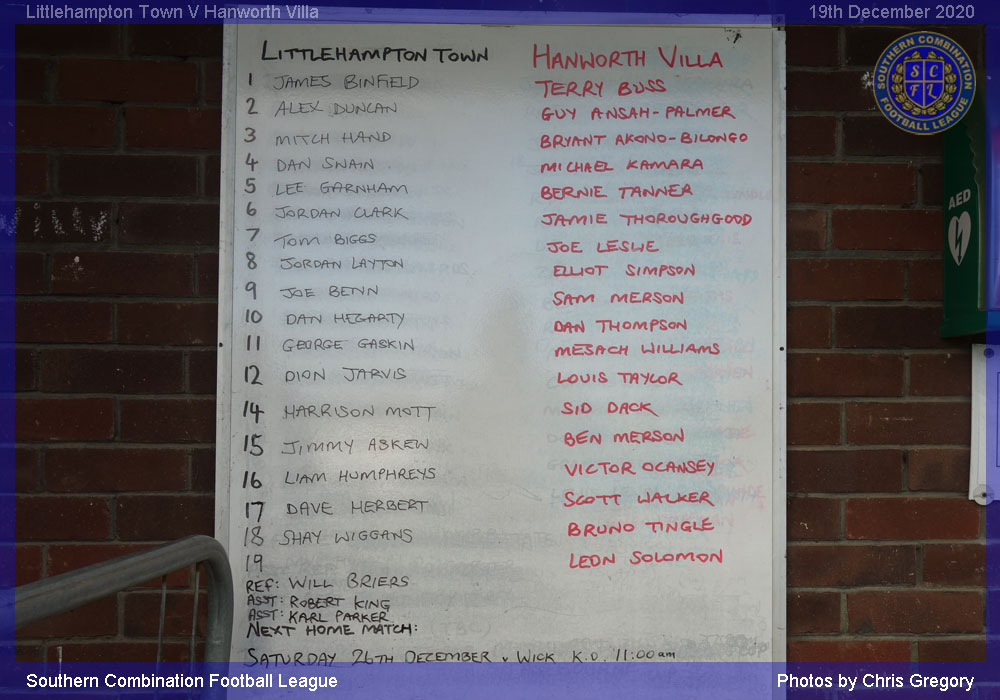 Littlehampton Town V Hanworth Villa 19th December 2020
SOUTHERN COMBINATION
SCFL
FOOTBALL LEAGUE
AED
LITTLEHAMPTON TOWN HANWORTH VILLA
1 JAMES BINFIELD TERRY BUSS
2 ALEX DUNCAN GUY ANSAH-PALMER
3 MITCH HAND BRYANT AKONO-BILONGO
4 DAN SWAIN MICHAEL KAMARA
5 LEE GARNHAM BERNIE TANNER
6 JORDAN CLARK JAMIE THOROUGHGOOD
7 TOM BIGGS JOE LESLIE
8 JORDAN LAYTON ELLIOT SIMPSON
9 JOE BENN SAM MERSON
10 DAN HEGARTY DAN THOMPSON
11 GEORGE GASKIN MESACH WILLIAMS
12 DION JARVIS LOUIS TAYLOR
14 HARRISON MOTT SID DACK
15 JIMMY ASKEW BEN MERSON
16 LIAM HUMPHREYS VICTOR OCANSEY
17 DAVE HERBERT SCOTT WALKER
18 SHAY WIGGANS BRUNO TINGLE
19 LEON SOLOMON
REF: WILL BRIERS
ASST: ROBERT KING
ASST: KARL PARKER
NEXT HOME MATCH:
SATURDAY 26TH DECEMBER v WICK K.O. 11:00am
Southern Combination Football League Photos by Chris Gregory